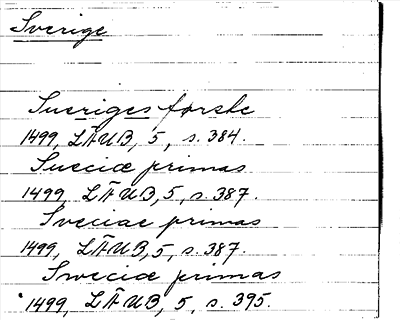 Sverige
Sueriges første
1499, LÄUB, 5, s. 384.
Sueciæ primas
1499, LÄUB, 5, s. 387.
Sveciae primas
1499, LÄUB, 5, s. 387.
Sweciæ primas
1499, LÄUB, 5, s. 395.